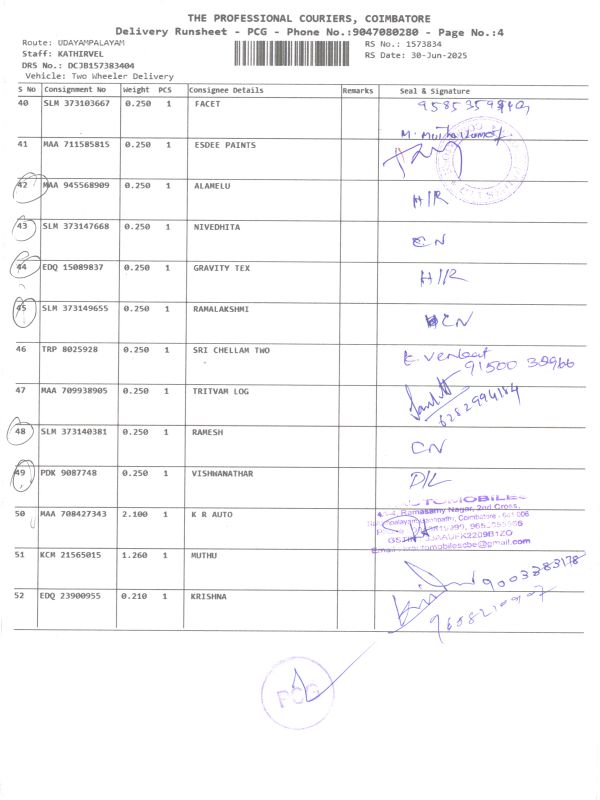 THE PROFESSIONAL COURIERS, COIMBATORE
Delivery Runsheet - PCG - Phone No.:9047080280 - Page No.:4
Route: UDAYAMPALAYAM
Staff: KATHIRVEL
DRS No.: DCJB157383404
Vehicle: Two Wheeler Delivery
RS No.: 1573834
RS Date: 30-Jun-2025
S No Consignment No Weight PCS Consignee Details Remarks Seal & Signature
40 SLM 373103667 0.250 1 FACET
41 MAA 711585815 0.250 1 ESDEE PAINTS
42 MAA 945568909 0.250 1 ALAMELU H/R
43 SLM 373147668 0.250 1 NIVEDHITA CN
44 EDQ 15089837 0.250 1 GRAVITY TEX H/R
45 SLM 373149655 0.250 1 RAMALAKSHMI CN
46 TRP 8025928 0.250 1 SRI CHELLAM TWO E. Venkat
91500 35966
47 MAA 709938905 0.250 1 TRITVAM LOG
6282994184
48 SLM 373140381 0.250 1 RAMESH CN
49 PDK 9087748 0.250 1 VISHWANATHAR D/L
50 MAA 708427343 2.100 1 K R AUTO
AUTOMOBILES
Ramasamy Nagar, 2nd Cross,
Coimbatore - 641 006
51 KCM 21565015 1.260 1 MUTHU 9003383178
52 EDQ 23900955 0.210 1 KRISHNA
9608210907
PCG